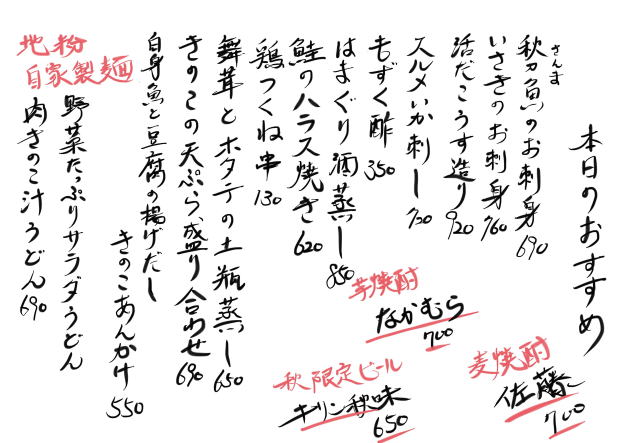 本日のおすすめ
さんま
秋刀魚のお刺身 690
いさきのお刺身 760
活だこうす造り 920
スルメいか刺し 720
もずく酢 350
はまぐり酒蒸し 850
鮭のハラス焼き 620
鶏つくね串 130
舞茸とホタテの土瓶蒸し 650
きのこの天ぷら盛り合わせ 690
白身魚と豆腐の揚げだし
きのこあんかけ 550
地粉
自家製麺
野菜たっぷりサラダうどん
肉きのこ汁うどん 690
芋焼酎
なかむら
700
麦焼酎
佐藤
700
秋限定ビール
キリン秋味
650